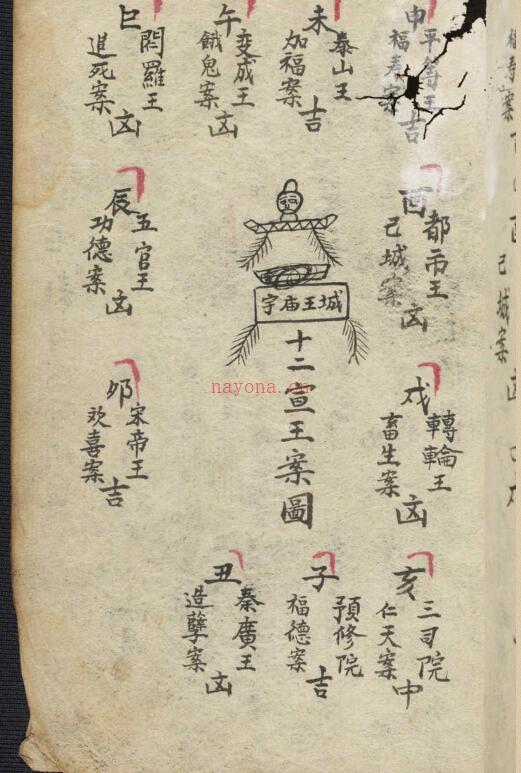 申
平等王
福寿案
吉
未
泰山王
加福案
吉
午
变成王
餓鬼案
凶
巳
閻羅王
追死案
凶
酉
都市王
己城案
凶
城王庙宇
十二宣王案圖
辰
五官王
功德案
凶
戌
轉輪王
畜生案
凶
卯
宋帝王
欢喜案
吉
亥
三司院
仁天案
中
子
預修院
福德案
吉
丑
秦廣王
造孽案
凶
nayona.cn
己城案